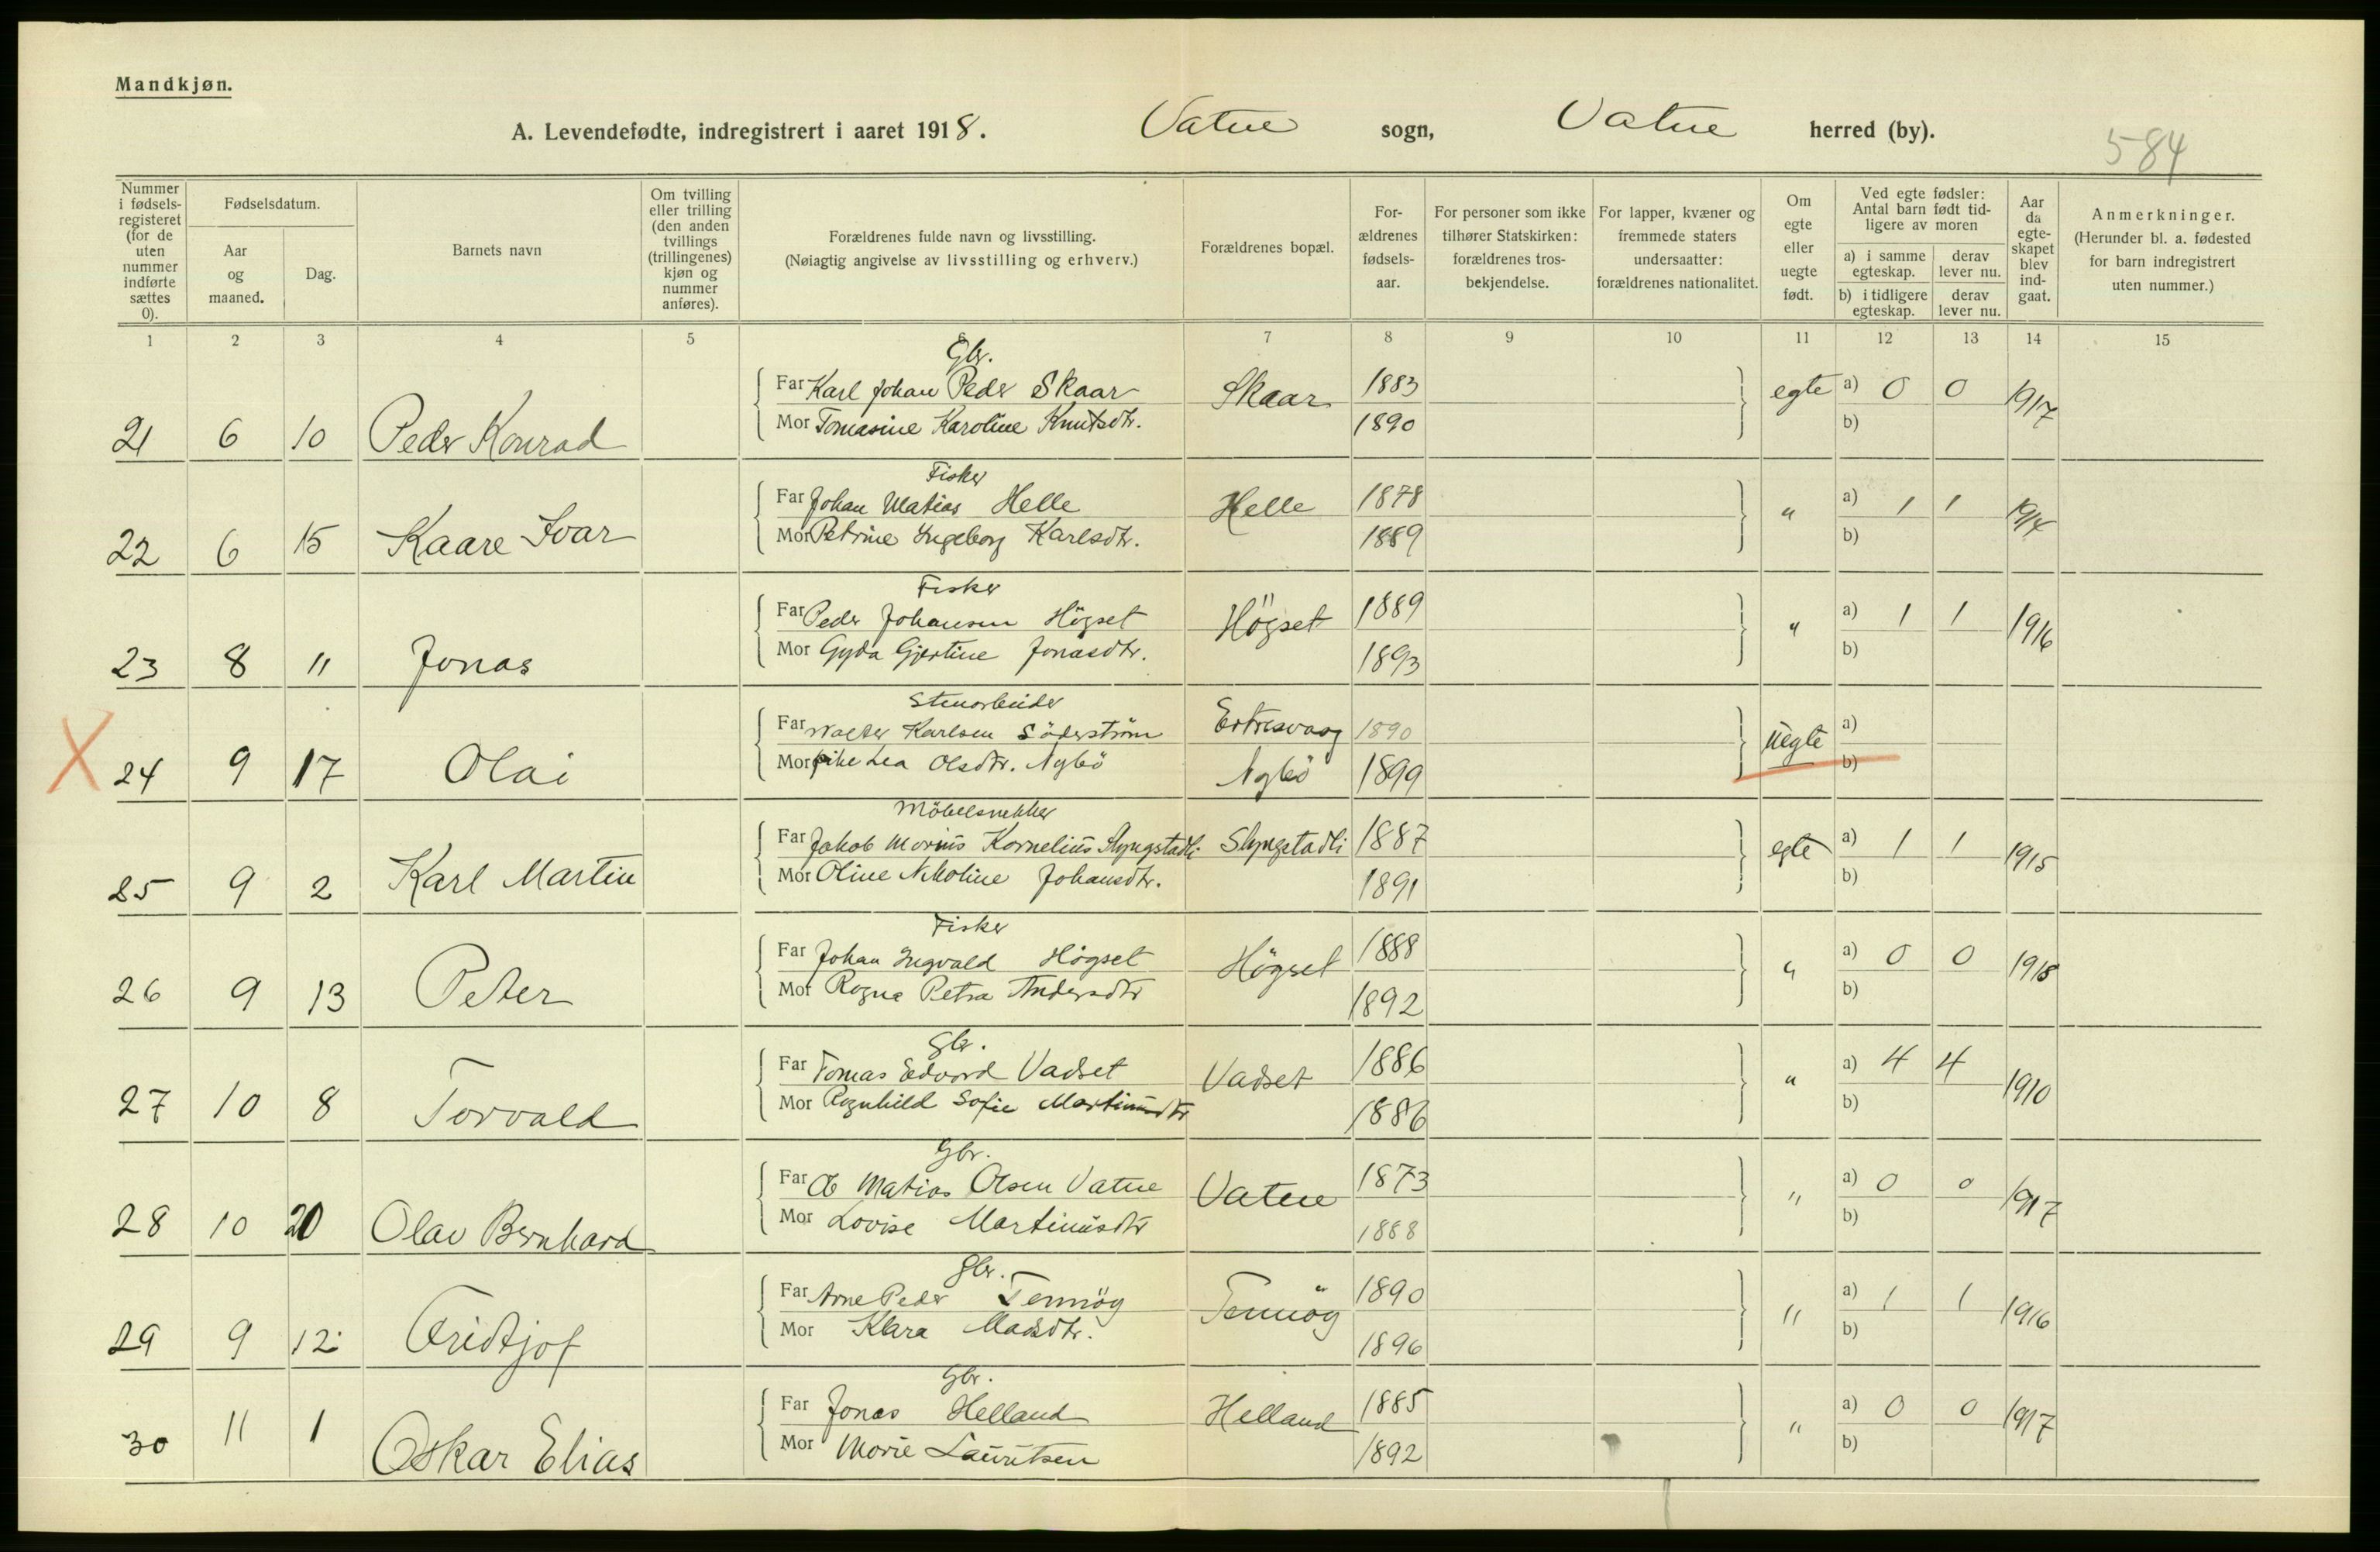 Mandkjøn.
A. Levendefødte, indregistrert i aaret 1918. Vatne sogn, Vatne herred (by).
584
Nummer i fødsels-registeret (for de uten nummer indførte sættes 0).
Fødselsdatum.
Aar og maaned.
Dag.
Barnets navn
Om tvilling eller trilling (den anden tvillings (trillingenes) kjøn og nummer anføres).
Forældrenes fulde navn og livsstilling.
(Nøiagtig angivelse av livsstilling og erhverv.)
Forældrenes bopæl.
For-ældrenes fødsels-aar.
For personer som ikke tilhører Statskirken: forældrenes tros-bekjendelse.
For lapper, kvæner og fremmede staters undersaatter: forældrenes nationalitet.
Om egte eller uegte født.
Ved egte fødsler: Antal barn født tid-ligere av moren
a) i samme egteskap.
derav lever nu.
b) i tidligere egteskap.
derav lever nu.
Aar da egte-skapet blev ind-gaat.
Anmerkninger.
(Herunder bl. a. fødested for barn indregistrert uten nummer.)
1 2 3 4 5 6 7 8 9 10 11 12 13 14 15
Gbr.
Far Karl Johan Peder Skaar Skaar 1883 egte a) 0 0 1917
21 6 10 Peder Konrad Mor Tomasine Karoline Knutsdtr. 1890 b)
Fisker
Far Johan Matias Helle Helle 1878 " a) 1 1 1914
22 6 15 Kaare Ivar Mor Petrine Ingeborg Karlsdtr. 1889 b)
Fisker
Far Peder Johansen Högset Högset 1889 " a) 1 1 1916
23 8 11 Jonas Mor Gyda Gjertine Jonasdtr. 1893 b)
Stenarbeider
Far Walter Karlsen Söderström Ertresvaag 1890 uegte a)
X 24 9 17 Olai Mor pike Lea Olsdtr. Nybö Nybö 1899 b)
Möbelsnekker
Far Jakob Marius Kornelius Slyngstadli Slyngstadli 1887 egte a) 1 1 1915
25 9 2 Karl Martin Mor Oline Nikoline Johansdtr. 1891 b)
Fisker
Far Johan Ingvald Högset Högset 1888 " a) 0 0 1918
26 9 13 Peter Mor Ragna Petra Andersdtr 1892 b)
Gbr.
Far Tomas Edvard Vadset Vadset 1886 " a) 4 4 1910
27 10 8 Torvald Mor Ragnhild Sofie Martinusdtr 1886 b)
Gbr.
Far Matias Olsen Vatne Vatne 1873 " a) 0 0 1917
28 10 20 Olav Bernhard Mor Lovise Martinusdtr 1888 b)
Gbr.
Far Arne Peder Tennöy Tennöy 1890 " a) 1 1 1916
29 9 12 Fridtjof Mor Klara Madsdtr. 1896 b)
Gbr.
Far Jonas Helland Helland 1885 " a) 0 0 1917
30 11 1 Oskar Elias Mor Marie Lauritsen 1892 b)